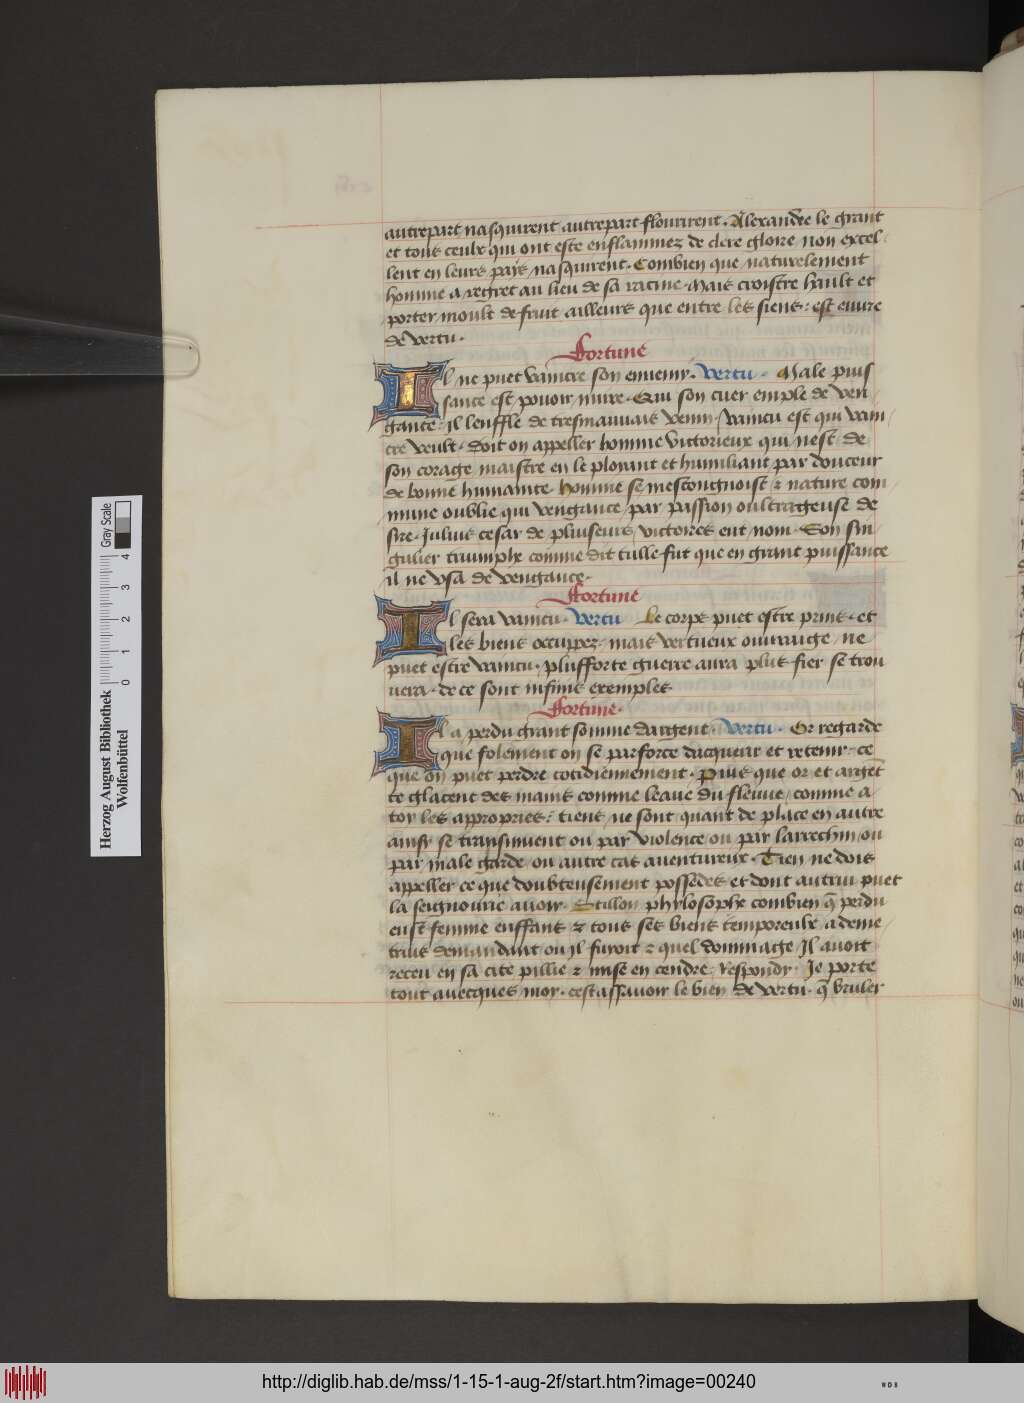 autrepart nasquirent autrepart flourirent. Alexandre le grant
et tous ceulx qui ont este enflammez de clere gloire non excel
lent en leurs pays nasquirent. Combien que naturelement
homme a regret au lieu de sa racine. Mais croistre hault et
porter moult de fruit ailleurs que entre les siens: est euure
de vertu.
Fortune
Il ne puet vaincre son ennemy. Vertu. Male puis
sance est pouoir nuire. Qui son cuer emple de ven
gance: il lenffle de tresmauuais venin. vaincu est qui vain
cre veult. doit on appeller homme victorieux qui nest de
son corage maistre en le ployant et humiliant par douceur
de bonne humanite. homme se mescongnoist & nature com
mune oublie qui vengance par passion oultrageuse de
sire. Julius cesar de pluiseurs victoires eut nom. Son sin
gulier triumphe comme dit tulle fut que en grant puissance
il ne vsa de vengance.
Fortune
Il sera vaincu. Vertu Le corps puet estre prins. et
les biens occuppez. mais vertueux couraige ne
puet estre vaincu. plusfforte guerre aura plus fier se trou
uera. de ce sont infinis exemples.
Fortune.
Il a perdu grant somme dargent. Vertu. Or regarde
que folement on se parforce dacquerir et retenir. ce
que on puet perdre cotidiennement. Puis que or et argēt
te glacent des mains comme leaue du fleuue / comme a
toy les appropries: tiens ne sont quant de place en autre
ainsy se transmuent ou par violence ou par larrechin ou
par male garde ou autre cas auentureux. Tien ne dois
appeller ce que doubteusement possedes et dont autrui puet
la seignourie auoir. Stillon phylosophe combien q̄ perdu
eust femme enffans & tous ses biens temporeulx a deme
trius demandant ou il fuyoit & quel dommage Il auoit
receu en sa cite pillie & mise en cendre / Respondy. Je porte
tout auecques moy. cest assauoir le bien de vertu. q̄ bruler
Herzog August Bibliothek
Wolfenbüttel
0 1 2 3 4
Gray Scale
http://diglib.hab.de/mss/1-15-1-aug-2f/start.htm?image=00240